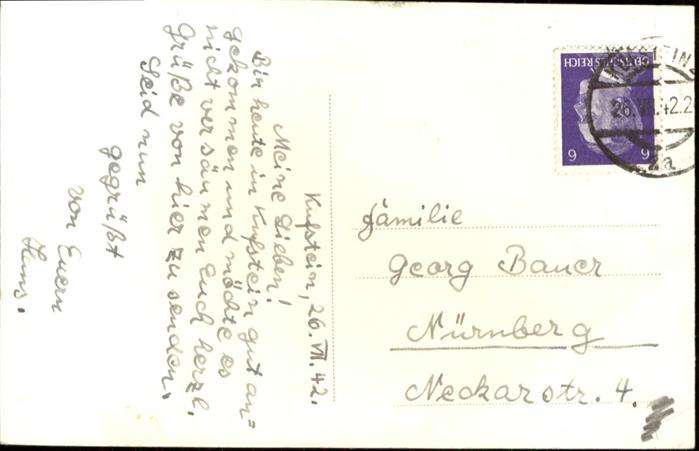 Kufstein, 26. VII. 42.
Meine Lieben!
Bin heute in Kufstein gut an=
gekommen und möchte es
nicht versäumen Euch herzl.
Grüße von hier zu senden.
Seid nun
gegrüßt
von Euern
Hans.
DEUTSCHES REICH
6 6
KUFSTEIN
26.VII.42.2
a
Familie
Georg Bauer
Nürnberg
Neckarstr. 4.